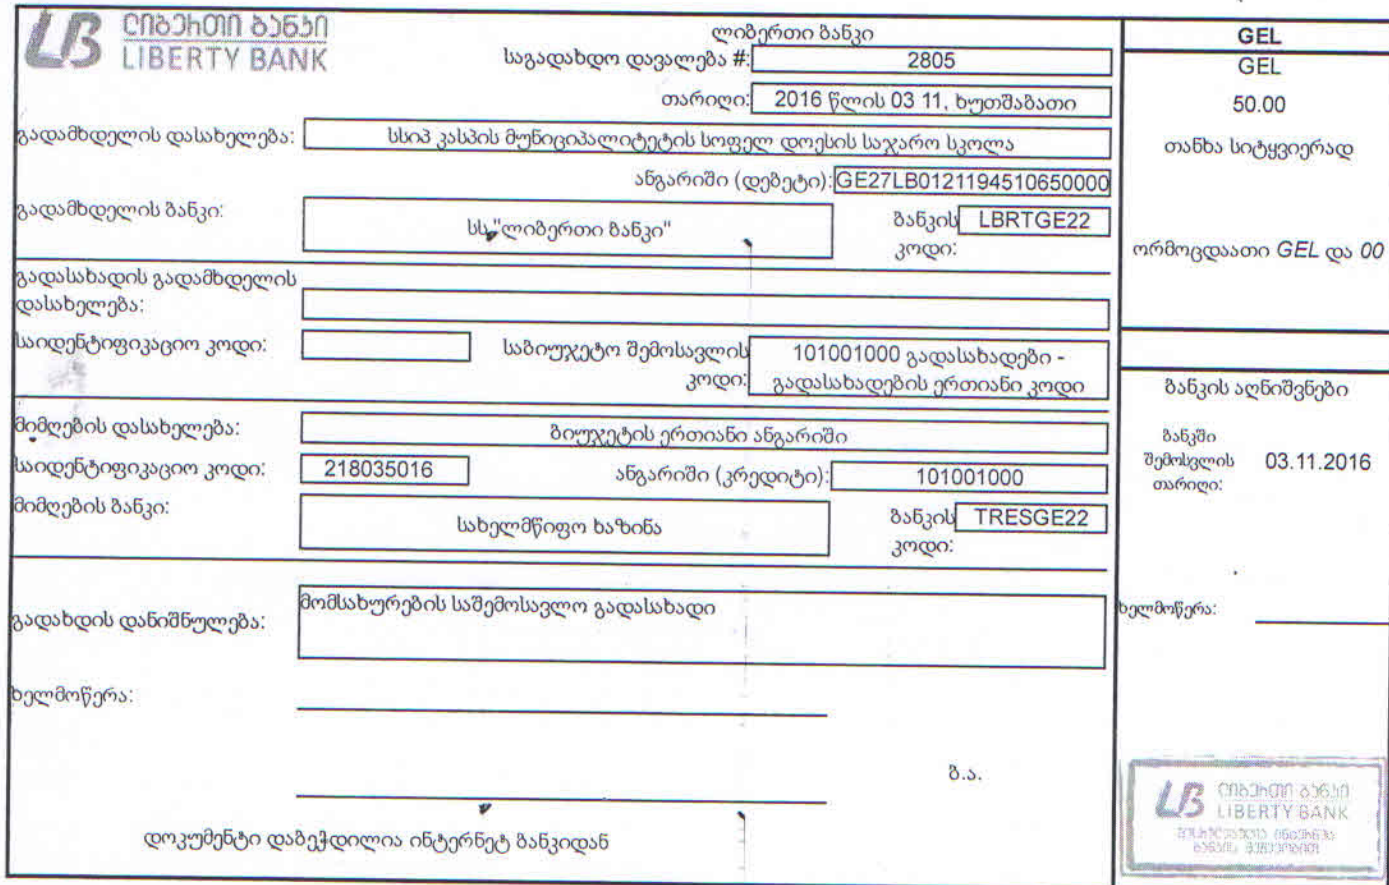 ლიბერთი ბანკი
LIBERTY BANK
ლიბერთი ბანკი
საგადახდო დავალება #: 2805
თარიღი: 2016 წლის 03 11, ხუთშაბათი
გადამხდელის დასახელება: სსიპ კასპის მუნიციპალიტეტის სოფელ დოესის საჯარო სკოლა
ანგარიში (დებეტი): GE27LB0121194510650000
გადამხდელის ბანკი: სს "ლიბერთი ბანკი" ბანკის კოდი: LBRTGE22
გადასახადის გადამხდელის
დასახელება:
საიდენტიფიკაციო კოდი: საბიუჯეტო შემოსავლის 101001000 გადასახადები -
კოდი: გადასახადების ერთიანი კოდი
მიმღების დასახელება: ბიუჯეტის ერთიანი ანგარიში
საიდენტიფიკაციო კოდი: 218035016 ანგარიში (კრედიტი): 101001000
მიმღების ბანკი: სახელმწიფო ხაზინა ბანკის კოდი: TRESGE22
გადახდის დანიშნულება: მომსახურების საშემოსავლო გადასახადი
ხელმოწერა:
ბ.ა.
დოკუმენტი დაბეჭდილია ინტერნეტ ბანკიდან
GEL
GEL
50.00
თანხა სიტყვიერად
ორმოცდაათი GEL და 00
ბანკის აღნიშვნები
ბანკში
შემოსვლის 03.11.2016
თარიღი:
ხელმოწერა:
ლიბერთი ბანკი
LIBERTY BANK